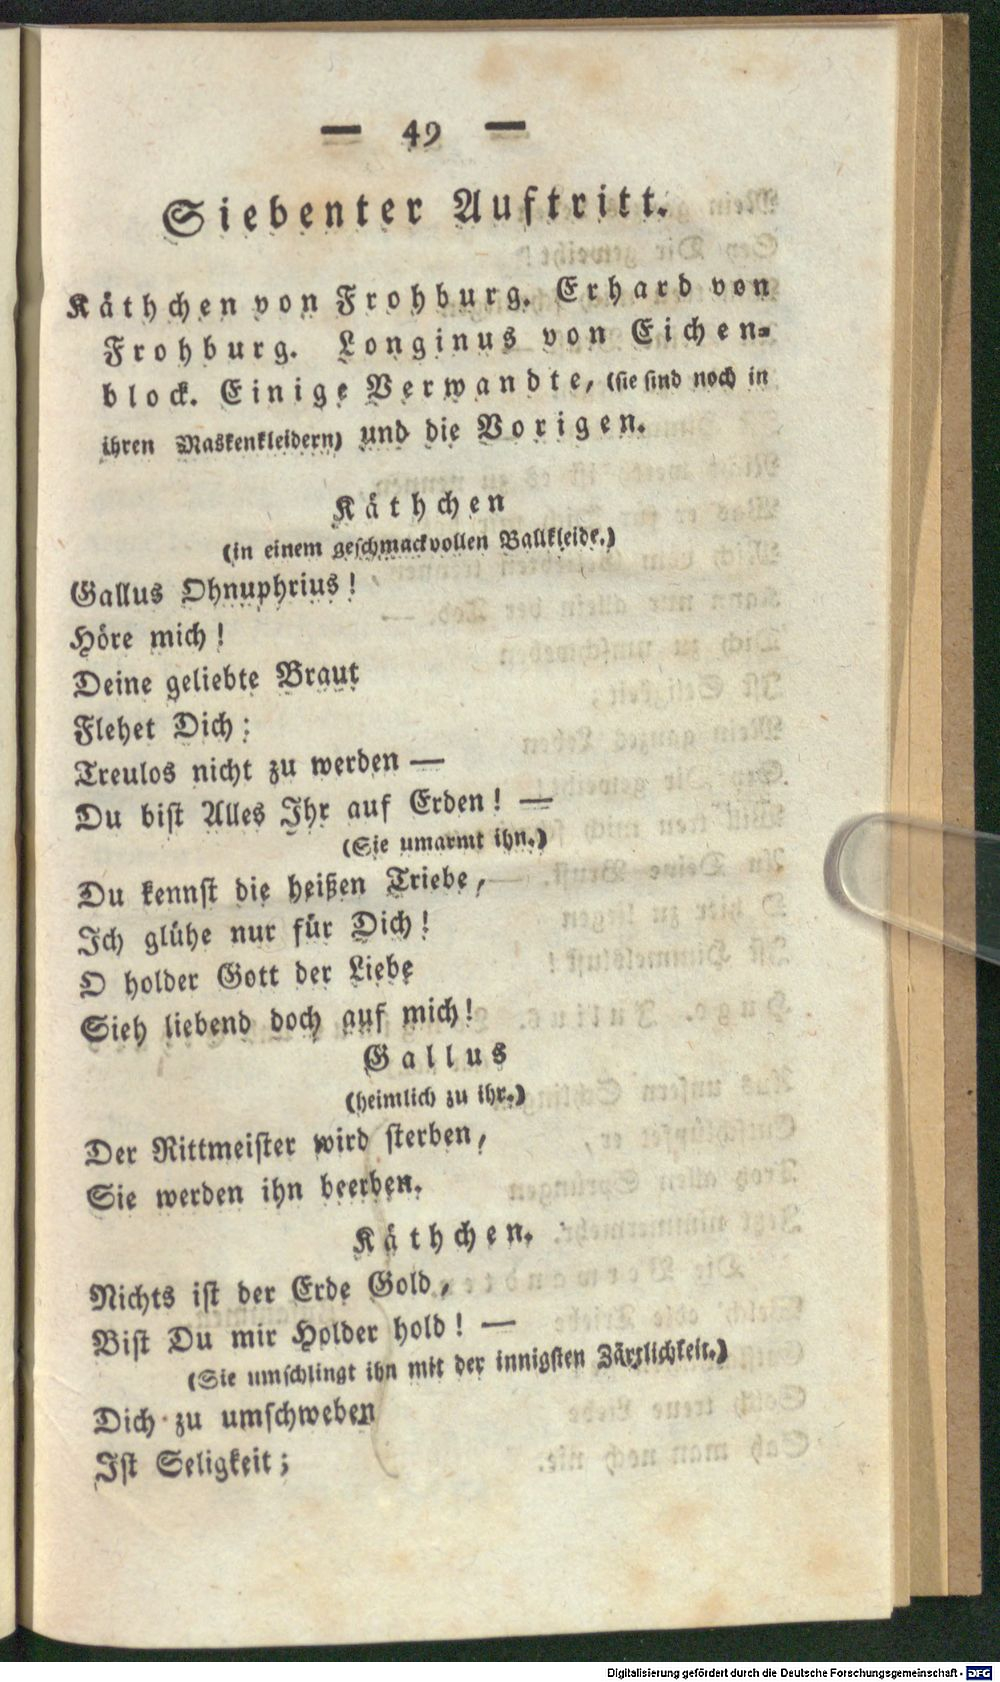 — 49 —
Siebenter Auftritt.
Käthchen von Frohburg. Erhard von
Frohburg. Longinus von Eichen-
block. Einige Verwandte, (sie sind noch in
ihren Maskenkleidern) und die Vorigen.
Käthchen
(in einem geschmackvollen Ballkleide.)
Gallus Ohnuphrius!
Höre mich!
Deine geliebte Braut
Flehet Dich:
Treulos nicht zu werden —
Du bist Alles Ihr auf Erden! —
(Sie umarmt ihn.)
Du kennst die heißen Triebe, —
Ich glühe nur für Dich!
O holder Gott der Liebe
Sieh liebend doch auf mich!
Gallus
(heimlich zu ihr.)
Der Rittmeister wird sterben,
Sie werden ihn beerben.
Käthchen.
Nichts ist der Erde Gold,
Bist Du mir Holder hold! —
(Sie umschlingt ihn mit der innigsten Zärtlichkeit.)
Dich zu umschweben
Ist Seligkeit;
Digitalisierung gefördert durch die Deutsche Forschungsgemeinschaft - DFG